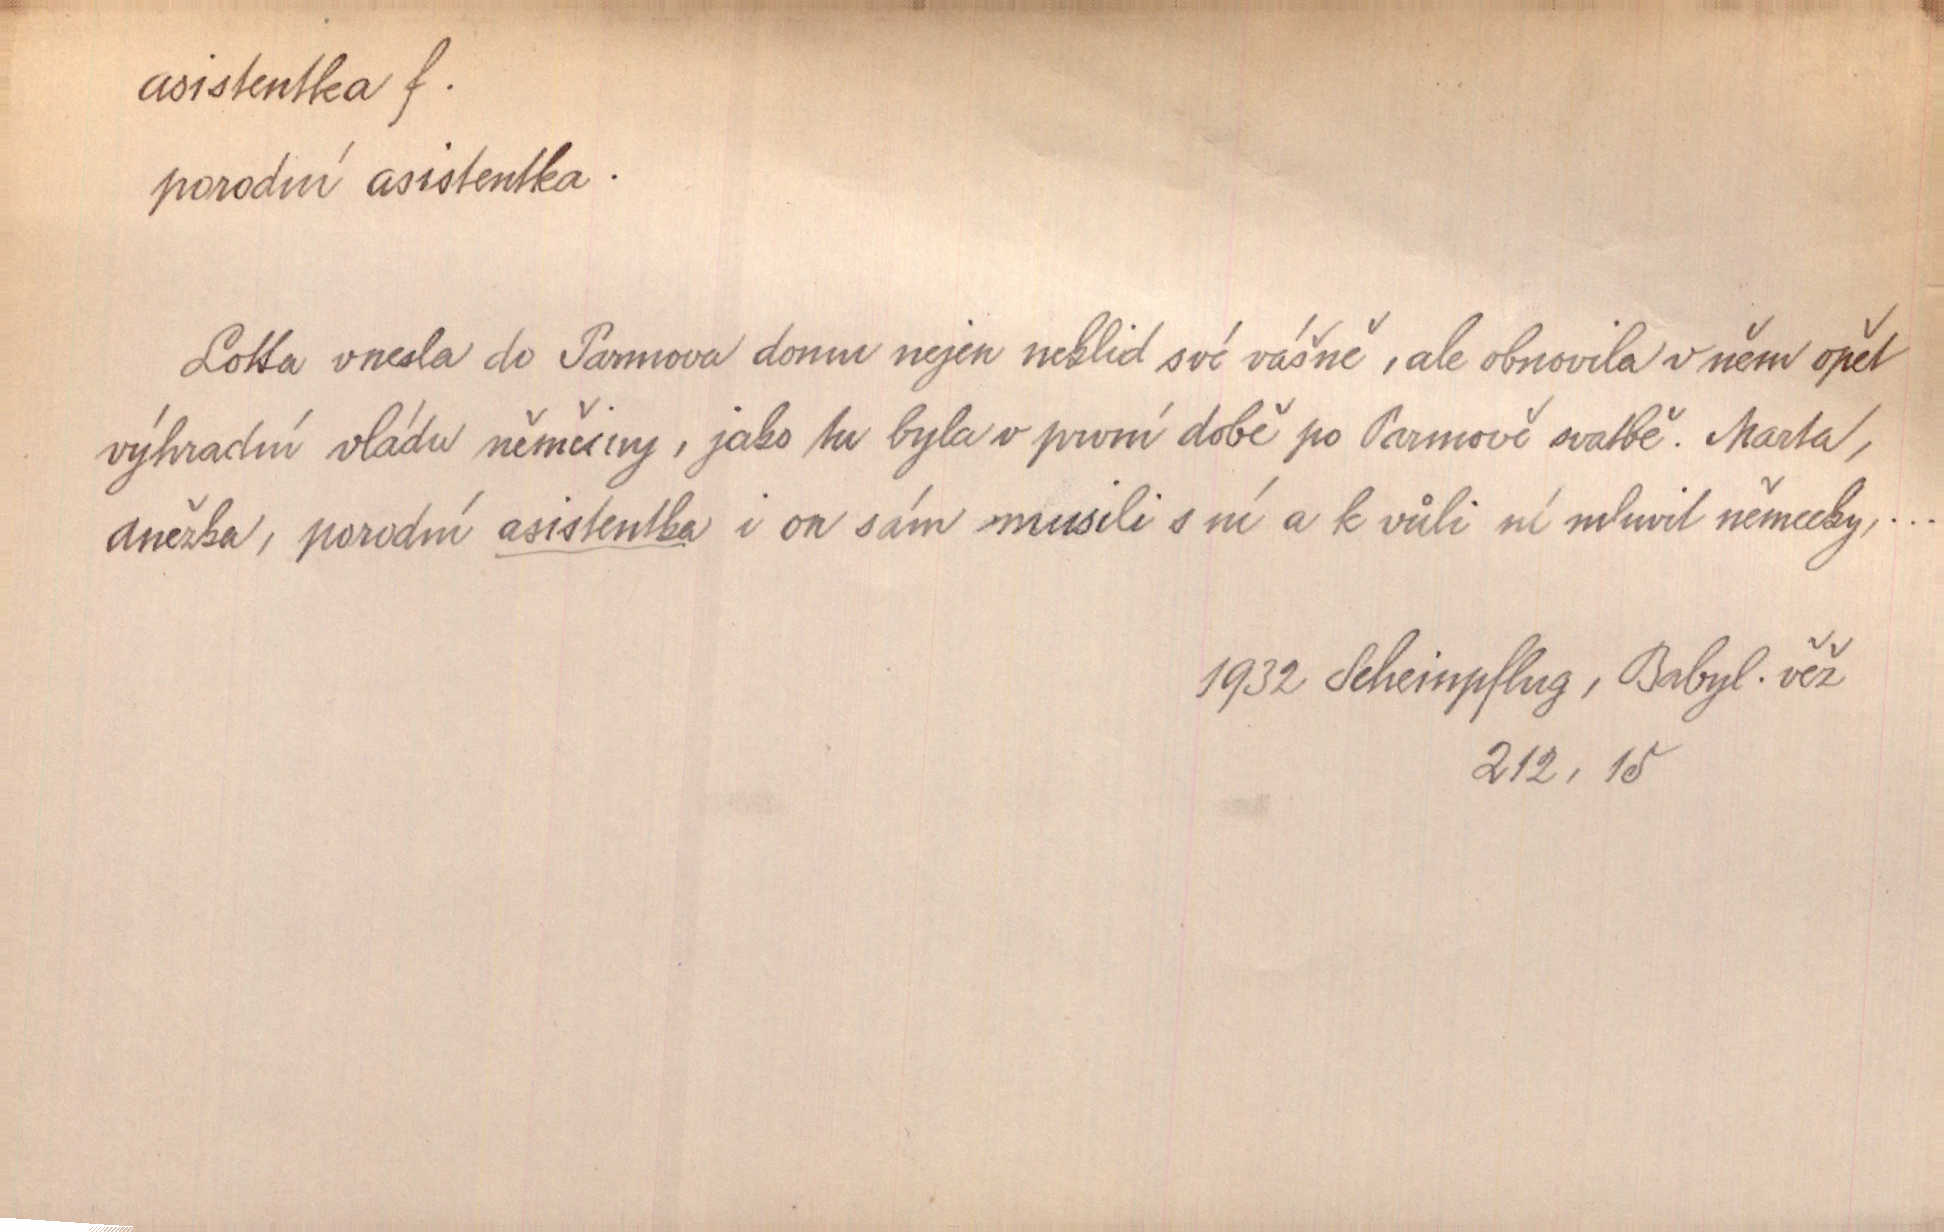 asistentka f.
porodní asistentka.
Lotta vnesla do Parmova domu nejen neklid své vášně, ale obnovila v něm opět
výhradní vládu němčiny, jako tu byla v první době po Parmově svatbě. Marta,
Anežka, porodní asistentka i on sám musili s ní a k vůli ní mluvit německy, ...
1932 Scheinpflug, Babyl. věž
212, 15